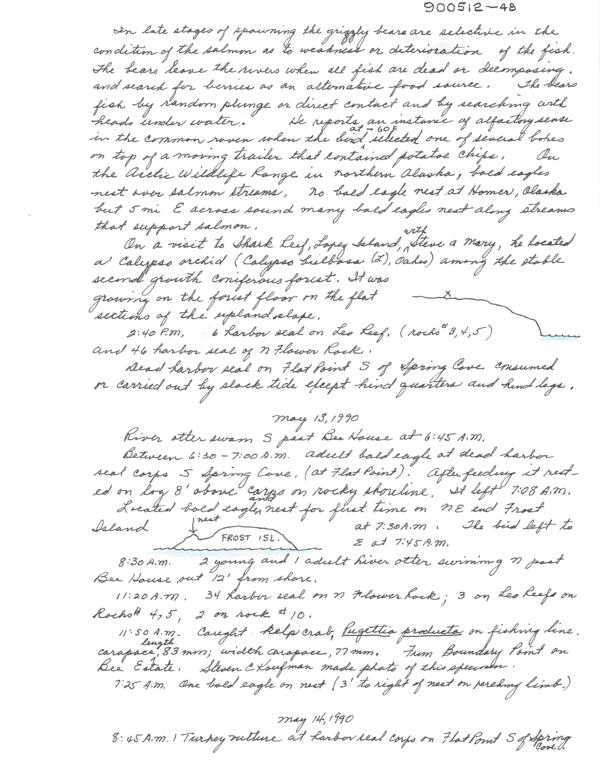 900512-4B
In late stages of spawning the grizzly bears are selective in the
condition of the salmon as to weakness or deterioration of the fish.
The bears leave the rivers when all fish are dead or decomposing.
and search for berries as an alternative food source. The bears
fish by random plunge or direct contact and by searching with
heads under water. He reports an instance of alfactory sense
at -60F
in the common raven when the bird selected one of several boxes
on top of a moving trailer that contained potatoe chips. On
the Arctic Wildlife Range in northern Alaska, bald eagles
nest over salmon streams. No bald eagle nest at Homer, Alaska
but 5 mi E across sound many bald eagles nest along streams
that support salmon.
with
On a visit to Shark Reef, Lopez Island, Steve a Mary, he located
a Calypso orchid (Calypso bulbosa (L), Oakes) among the stable
second growth coniferous forest. It was
growing on the forest floor on the flat
x
sections of the upland slope.
2:40 P.M. 6 harbor seal on Leo Reef, (rocks # 3,4,5)
and 46 harbor seal of N Flower Rock.
Dead harbor seal on Flat Point S of Spring Cove consumed
or carried out by slack tide except hind quarters and hind legs.
May 13, 1990
River otter swam S past Bee House at 6:45 A.M.
Between 6:30 - 7:00 A.M. adult bald eagle at dead harbor
seal corps S Spring Cove. (at Flat Point). After feeding it rest-
ed on log 8' above corps on rocky shoreline. It left 7:08 A.M.
and
Located bald eagle, nest for first time on NE end Frost
Island
nest
FROST ISL.
at 7:30 A.M. The bird left to
E at 7:45 A.M.
8:30 A.M. 2 young and 1 adult River otter swiming N past
Bee House out 12' from shore.
11:20 A.M. 34 harbor seal on N Flower Rock; 3 on Leo Reefs on
Rocks # 4,5, 2 on rock # 10.
11:50 A.M. Caught kelp crab, Pugettia producta on fishing line.
length
carapace, 83 mm; width carapace, 77 mm. From Boundary Point on
Bee Estate. Steven C Kaufman made photo of this specimen.
7:25 A.M. One bald eagle on nest (3' to right of nest on perching limb.)
May 14, 1990
8:45 A.M. 1 Turkey vulture at harbor seal corps on Flat Point S of Spring
Cove.